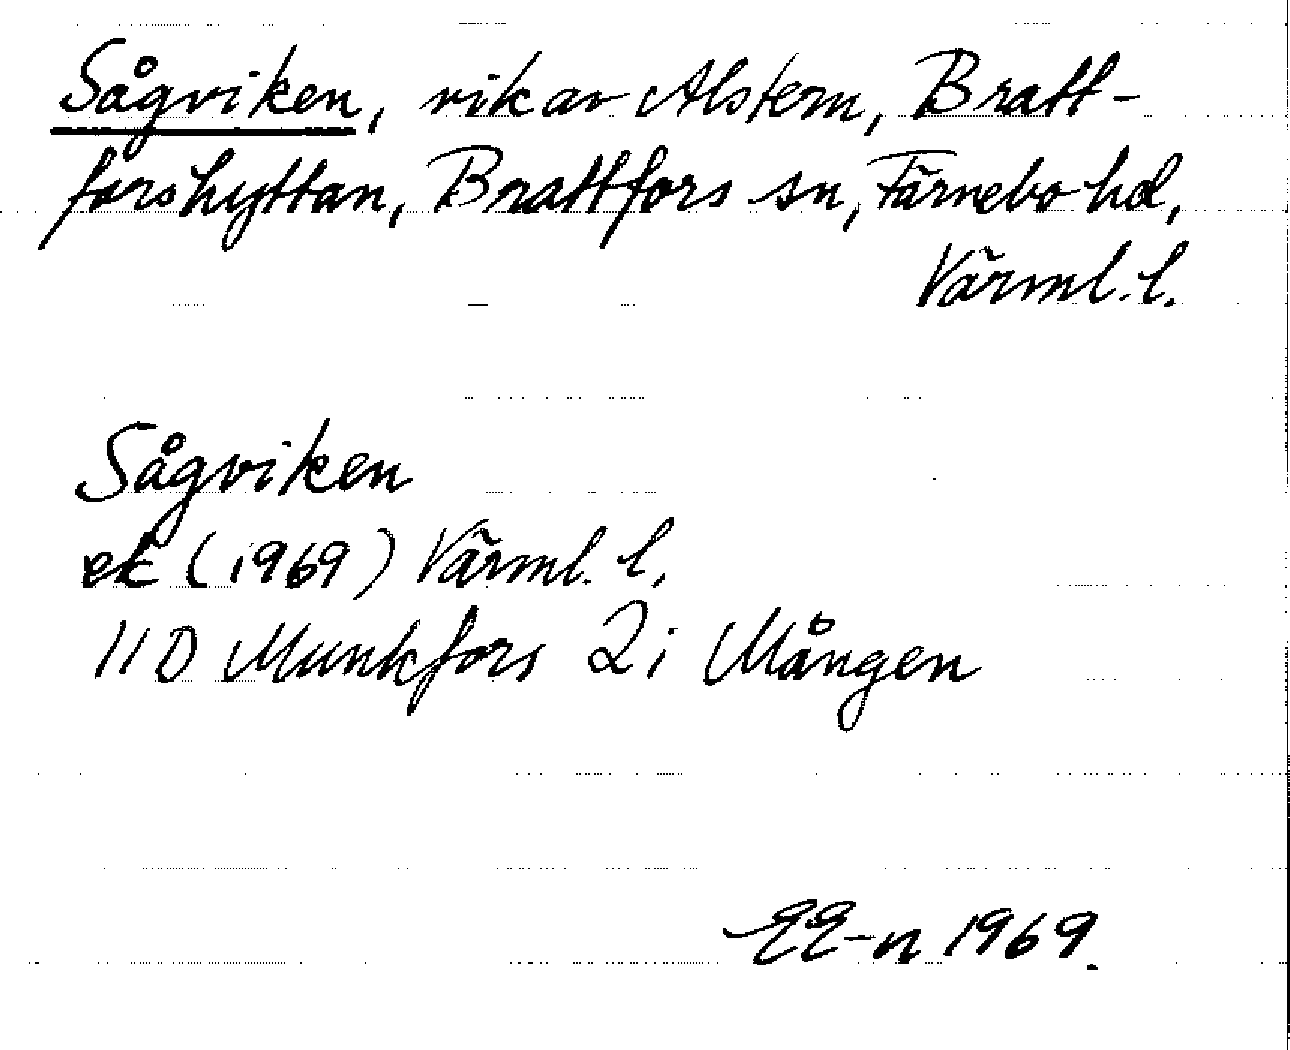 Sågviken, vik av Alstern, Bratt-
forshyttan, Brattfors sn, Färnebo hd,
Värml. l.
Sågviken
ek (1969) Värml. l.
11D Munkfors 2i Mången
EE-n 1969.